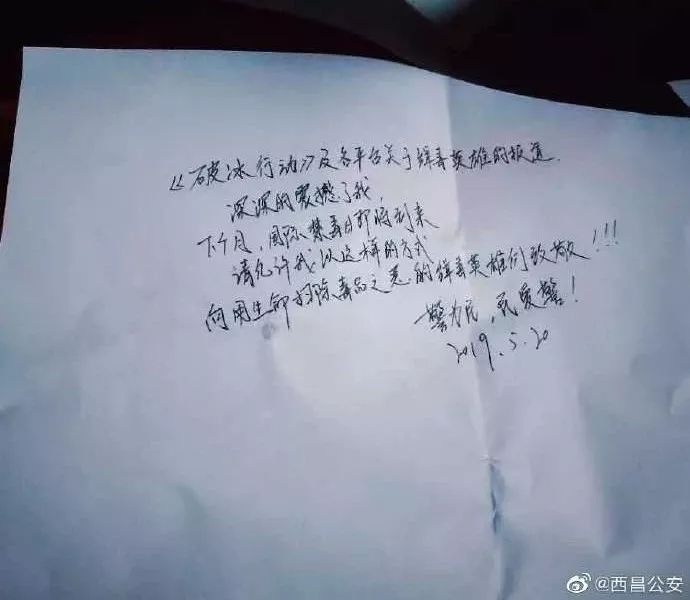 《破冰行动》及各平台关于缉毒英雄的报道
深深的震撼了我，
下个月，国际禁毒日即将到来
请允许我以这样的方式
向用生命扫除毒品之恶的缉毒英雄们致敬！！！
警为民，民爱警！
2019.5.20
@西昌公安